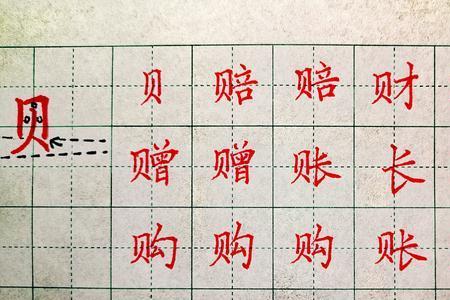 贝
贝 赔 赔 财
赠 赠 账 长
购 购 购 账